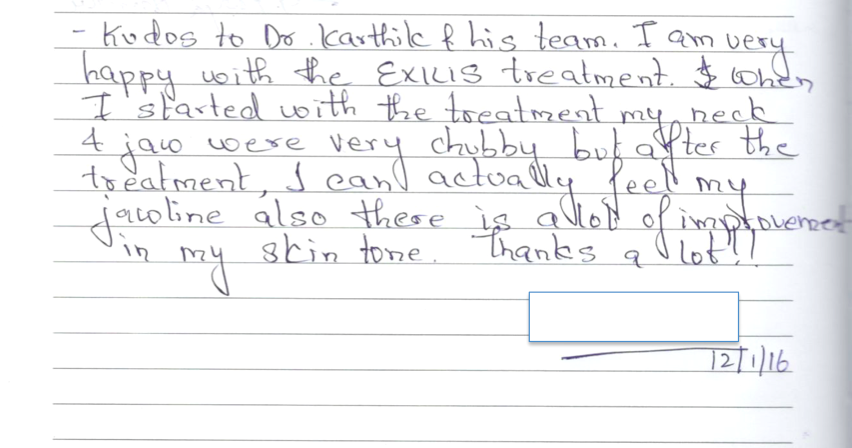 - Kudos to Dr. Karthik & his team. I am very
happy with the EXILIS treatment. When
I started with the treatment my neck
& jaw were very chubby but after the
treatment, I can actually feel my
jawline also there is a lot of improvement
in my skin tone. Thanks a lot!!
12/1/16